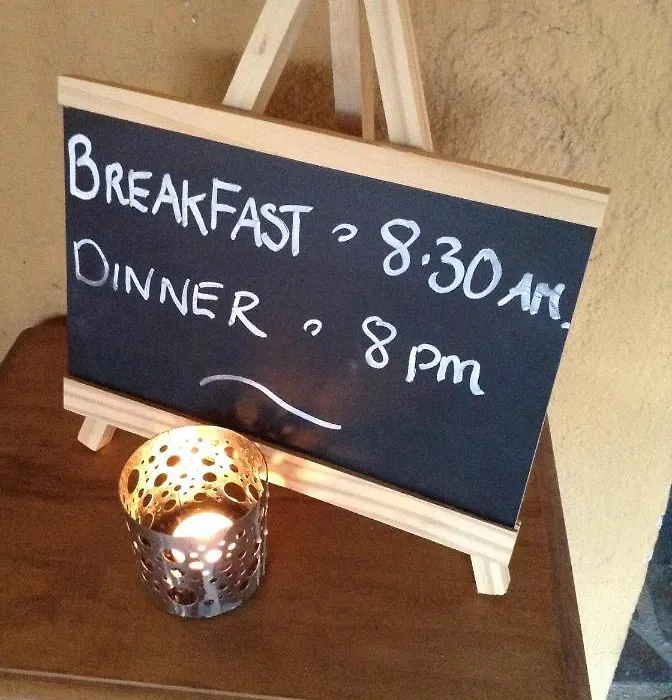 BREAKFAST ° 8.30 AM.
DINNER ° 8 pm